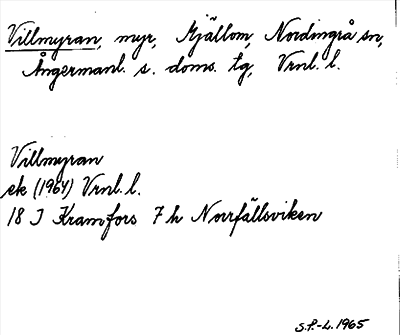 Villmyran, myr, Mjällom, Nordingrå sn,
Ångermanl. s. doms. tg, Vrnl. l.
Villmyran
ek (1964) Vrnl. l.
18 J Kramfors 7 h Norrfällsviken
S.F.-L. 1965